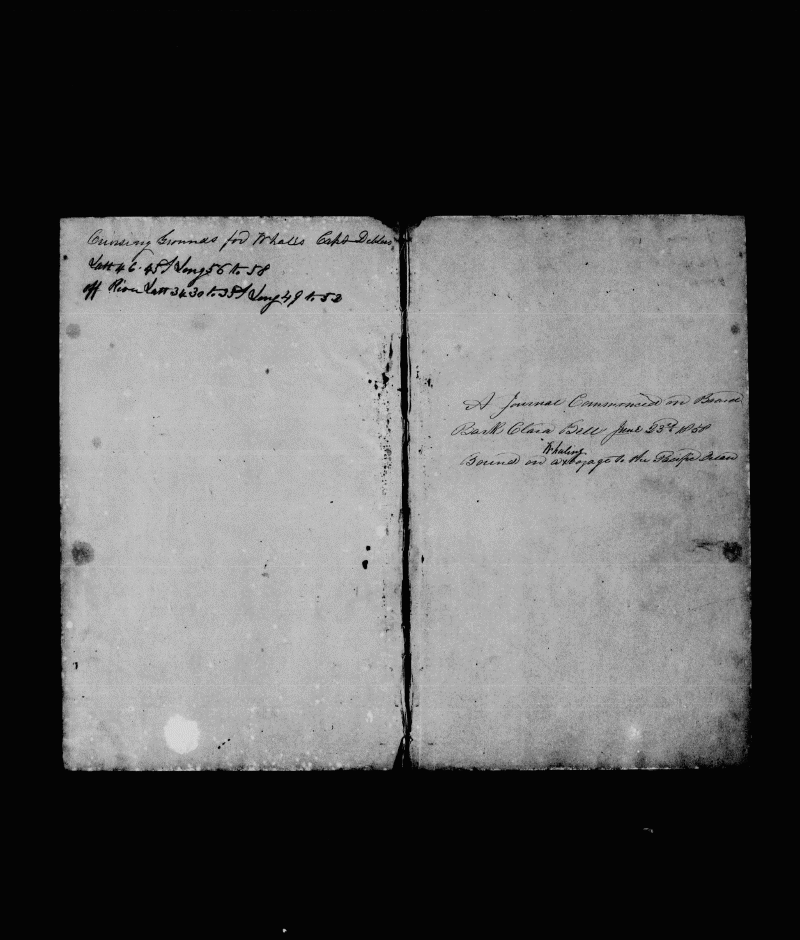 Cruising Grounds for Whales Capt
Latt 46.45 S Long 56 to 58
off River Latt 34.30 to 38 S Long 49 to 52
A Journal Commenced on Board
Bark Clara Bell June 23rd 1858
Whaling
Bound on a voyage to the Pacific Ocean